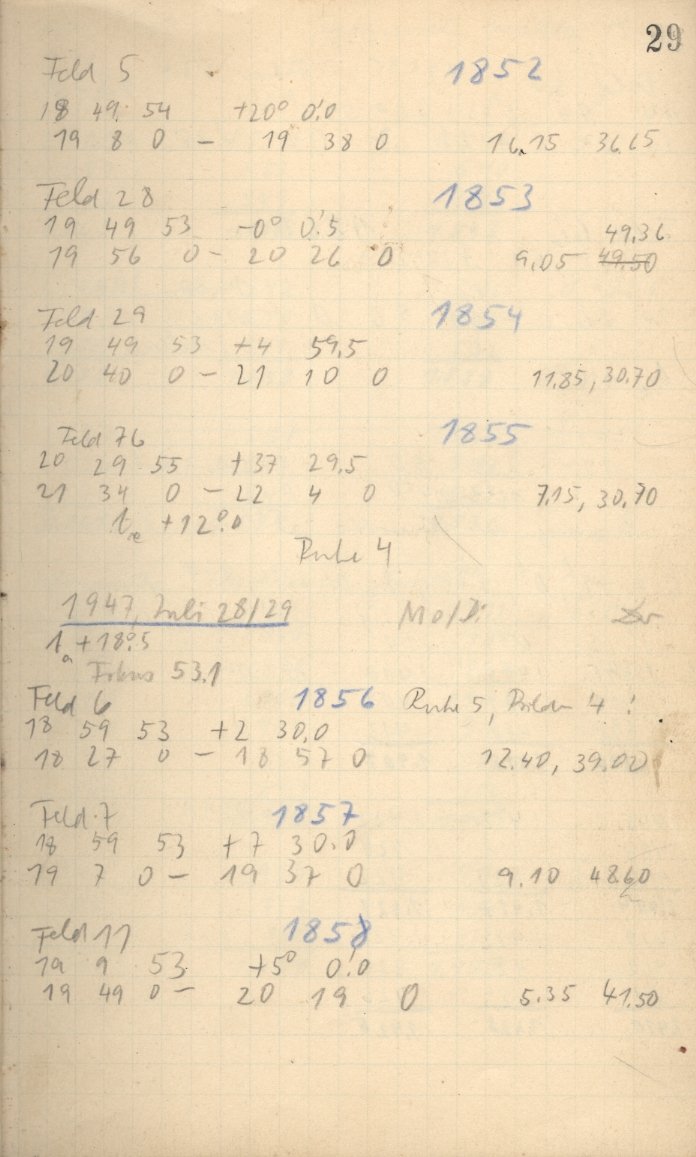 29
Feld 5 1852
18 49 54 +20° 0!0
19 8 0 - 19 38 0 16.15 36.65
Feld 28 1853
19 49 53 -0° 0!5 49.36
19 56 0 - 20 26 0 9.05 49.50
Feld 29 1854
19 49 53 +4 59.5
20 40 0 - 21 10 0 11.85, 30.70
Feld 76 1855
20 29 55 +37 29.5
21 34 0 - 22 4 0 7.15, 30.70
te +12°.0
Ruhe 4
1947, Juli 28/29 Mo/Di
ta +18°.5
Fokus 53.1
Feld 6 1856 Ruhe 5, Bilder 4 !
18 59 53 +2 30.0
18 27 0 - 18 57 0 12.40, 39.00
Feld 7 1857
18 59 53 +7 30.0
19 7 0 - 19 37 0 9.10 48.60
Feld 11 1858
19 9 53 +5° 0!0
19 49 0 - 20 19 0 5.35 41.50